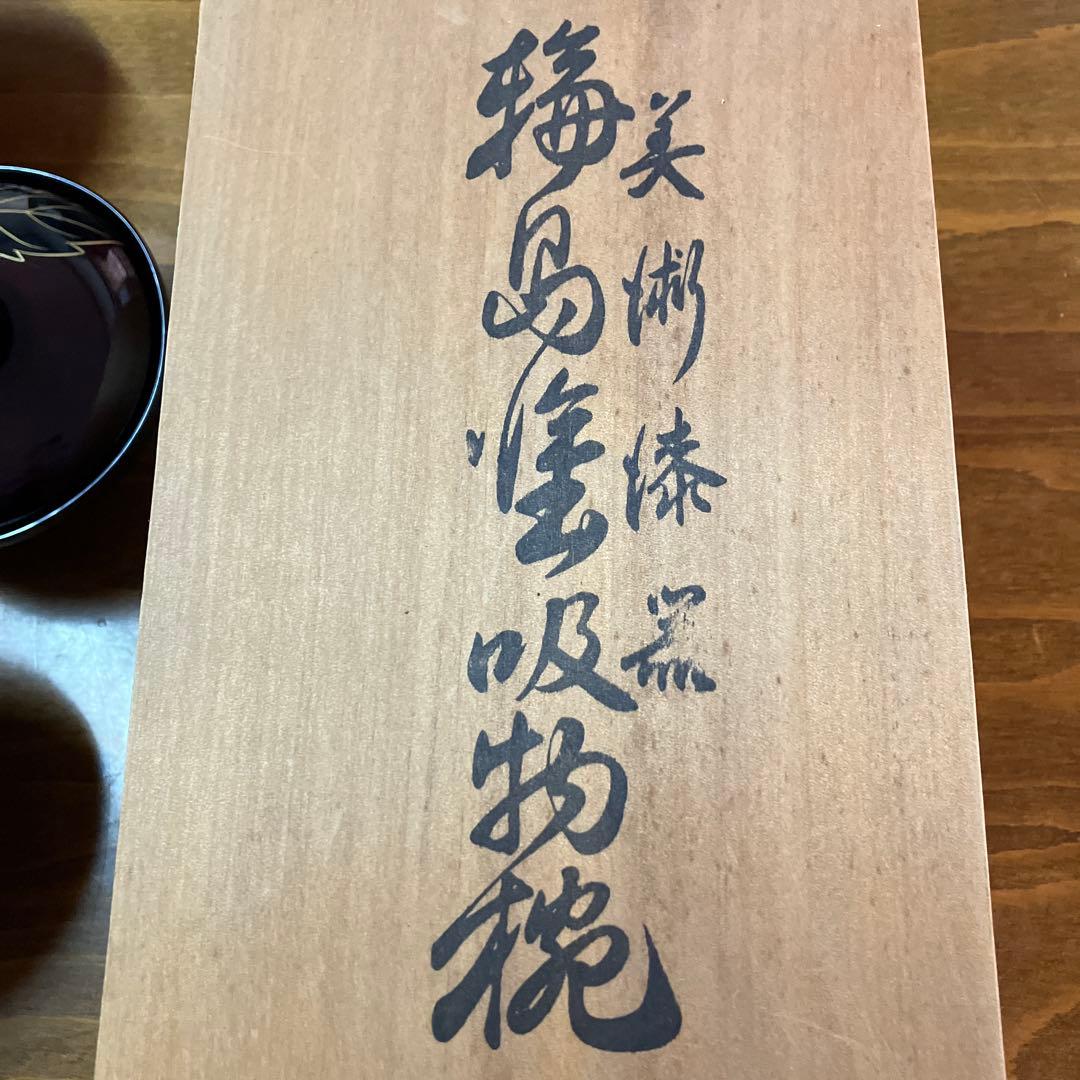 美術漆器
輪島塗吸物椀